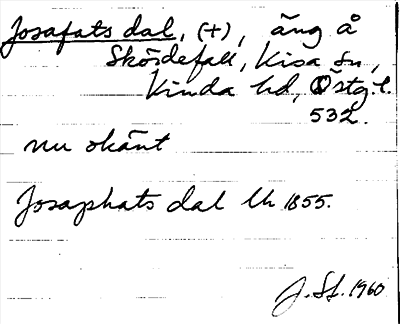 Josafats dal, (+), äng å
Skördefall, Kisa sn,
Kinda hd, Östg.l.
532.
nu okänt
Josaphats dal Lh 1855.
J. St. 1960